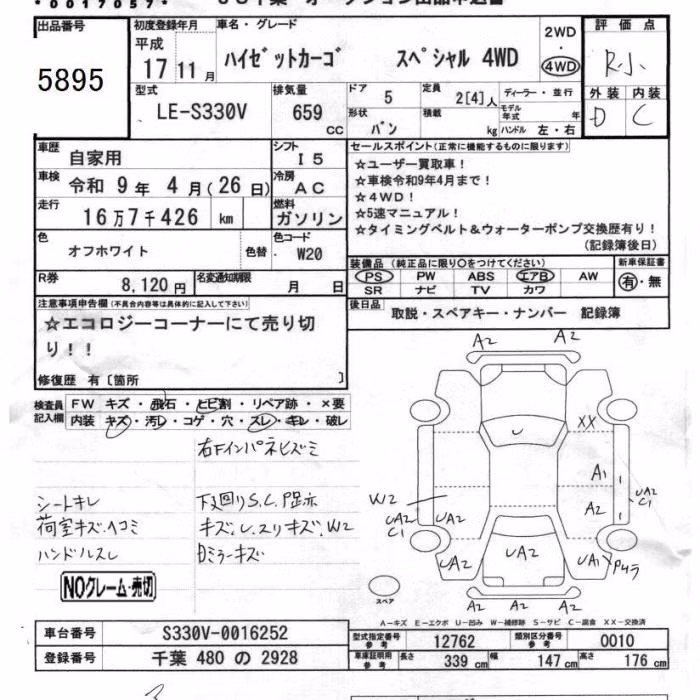 *0017057*
出品番号
5895
初度登録年月
平成
17 11 月
車名・グレード
ハイゼットカーゴ スペシャル 4WD
2WD
・
4WD
評価点
R小
外装 内装
D C
型式
LE-S330V
排気量
659
cc
ドア
5
形状
バン
定員
2[4]人
積載
kg
ディーラー・並行
モデル年式 年
ハンドル 左・右
車歴
自家用
シフト
I5
車検
令和 9 年 4 月(26 日)
冷房
AC
走行
16万7千426 km
燃料
ガソリン
色
オフホワイト
色替
色コード
W20
R券
8,120円
名変通知期限
月 日
セールスポイント(正常に機能するものに限ります)
☆ユーザー買取車!
☆車検令和9年4月まで!
☆4WD!
☆5速マニュアル!
☆タイミングベルト&ウォーターポンプ交換歴有り!
(記録簿後日)
装備品(純正品に限り○をつけてください)
PS PW ABS エアB AW
SR ナビ TV カワ
新車保証書
有・無
後日品
取説・スペアキー・ナンバー 記録簿
注意事項申告欄(不具合内容等は具体的に記入して下さい)
☆エコロジーコーナーにて売り切
り!!
修復歴 有〔箇所 〕
検査員
記入欄
FW キズ・飛石・ヒビ割・リペア跡・×要
内装 キズ・汚レ・コゲ・穴・スレ・キレ・破レ
右Fインパネヒズミ
シートキレ
荷室キズ、ヘコミ
ハンドルスレ
下廻りS.C.
キズ、
W2
ミラーキズ
NOクレーム・売切
A2 A2
XX
A1
A2
UA2
C1
W2
UA2
C1
UA2
UA2
UA2
UA1
A2 A2
A2
スペア
A-キズ E-エクボ U-凹み W-補修跡 S-サビ C-腐食 XX-交換済
車台番号
S330V-0016252
登録番号
千葉 480 の 2928
型式指定番号
参考
12762
類別区分番号
参考
0010
車庫証明用
参考
長さ 339 cm 幅 147 cm 高さ 176 cm